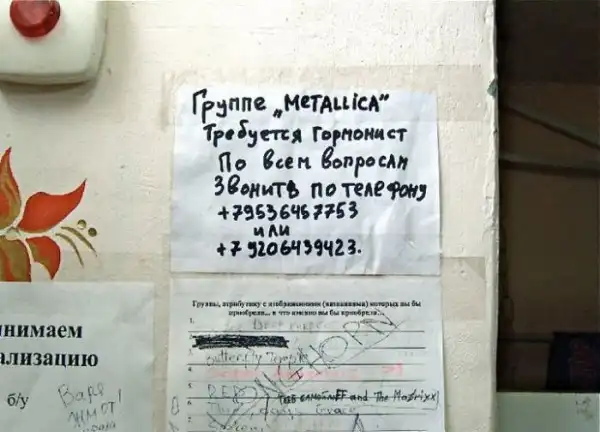 Группе „METALLiCA"
Требуется гормонист
По всем вопросам
Звонить по телефону
+79536457753
или
+79206439423.
Группы, атрибутику с изображениями (названиями) которых вы бы
приобрели... и что именно вы бы приобрели...
1.
3. Butterfly Temple
4.
5.
6. Глеб Самойлоff and The Matrixx
7.
нимаем
ализацию
б/у